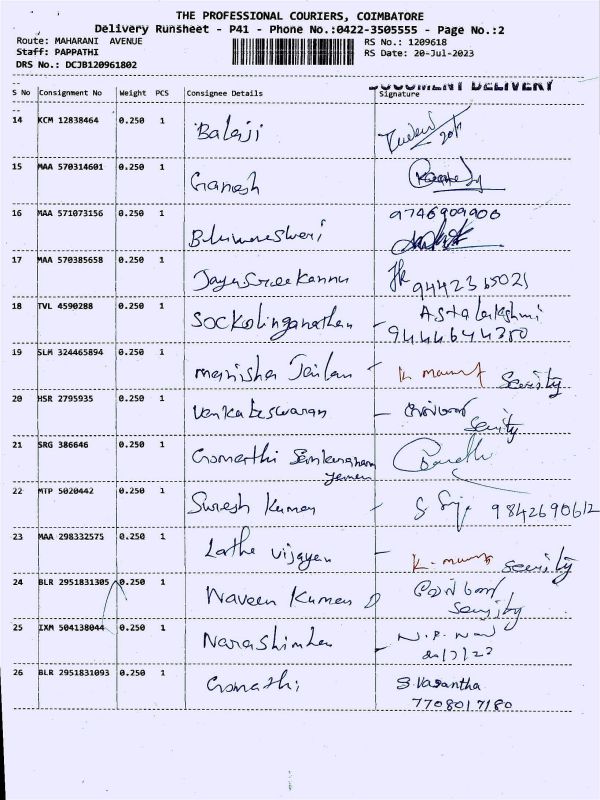 THE PROFESSIONAL COURIERS, COIMBATORE
Delivery Runsheet - P41 - Phone No.:0422-3505555 - Page No.:2
Route: MAHARANI AVENUE RS No.: 1209618
Staff: PAPPATHI RS Date: 20-Jul-2023
DRS No.: DCJB120961802
DOCUMENT DELIVERY
S No Consignment No Weight PCS Consignee Details Signature
14 KCM 12838464 0.250 1 Balaji
15 MAA 570314601 0.250 1 Ganesh
16 MAA 571073156 0.250 1 Bhuwaneshwari 9746909900
17 MAA 570385658 0.250 1 Jayasree Kannu 9442365021
18 TVL 4590288 0.250 1 Sockolinganathan - Asta lakshmi
9444644380
19 SLM 324465894 0.250 1 manisha Jailan - Security
20 HSR 2795935 0.250 1 Venkateswaran -
21 SRG 386646 0.250 1 Gomathi
22 MTP 5020442 0.250 1 Suresh Kumar - 9842690612
23 MAA 298332575 0.250 1 Latha vijayan - Security
24 BLR 2951831305 0.250 1 Naveen Kumar
25 IXM 504138044 0.250 1 Narashimhan -
20/7/23
26 BLR 2951831093 0.250 1 Gomathi S. Vasantha
7708017180